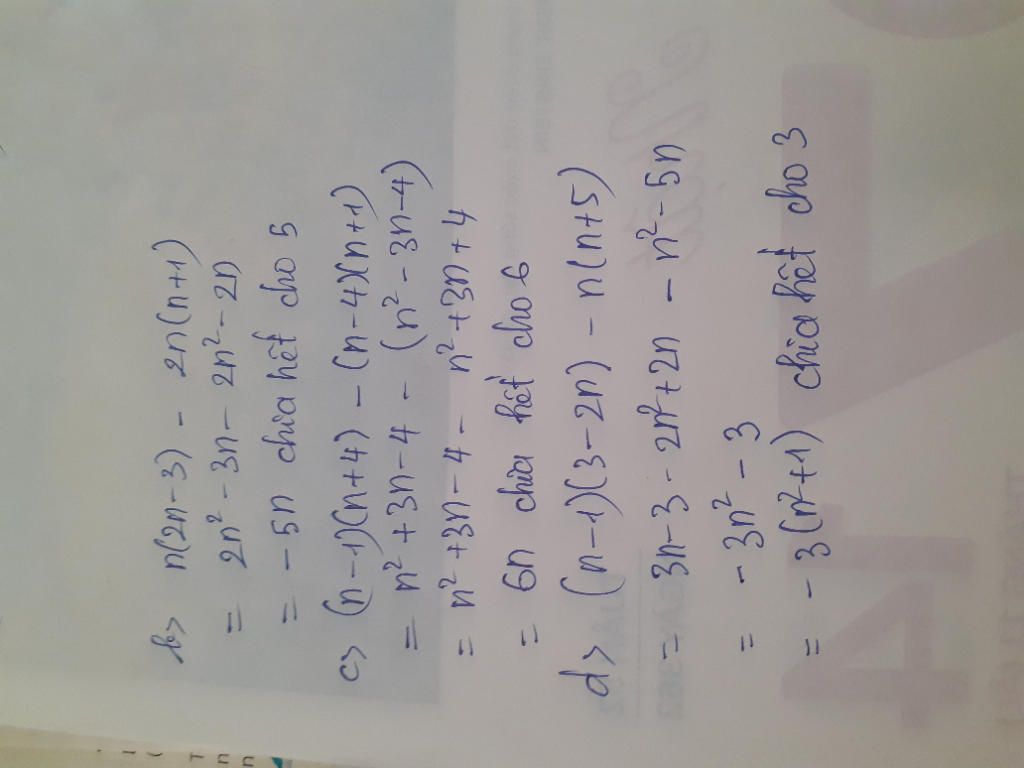 b> n(2n-3) - 2n(n+1)
= 2n² - 3n - 2n² - 2n
= - 5n chia hết cho 5
c> (n-1)(n+4) - (n-4)(n+1)
= n² + 3n - 4 - (n² - 3n - 4)
= n² + 3n - 4 - n² + 3n + 4
= 6n chia hết cho 6
d> (n-1)(3-2n) - n(n+5)
= 3n - 3 - 2n² + 2n - n² - 5n
= - 3n² - 3
= - 3(n²+1) chia hết cho 3